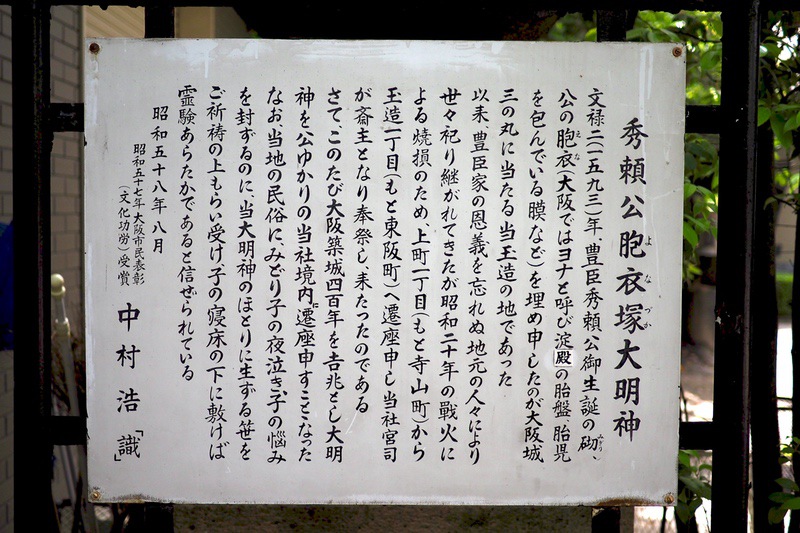 秀頼公胞衣塚大明神
よなづか
文禄二(一五九三)年、豊臣秀頼公御生誕の砌、
みぎり
公の胞衣(大阪ではヨナと呼び淀殿の胎盤、胎児
えな
を包んでいる膜など)を埋め申したのが大阪城
三の丸に当たる当玉造の地であった
以来、豊臣家の恩義を忘れぬ地元の人々により
世々祀り継がれてきたが昭和二十年の戦火に
よる焼損のため、上町一丁目(もと寺山町)から
玉造一丁目(もと東阪町)へ遷座申し当社宮司
が斎主となり奉祭し、来たったのである
さて、このたび大阪築城四百年を吉兆とし大明
神を公ゆかりの当社境内に遷座申すことなった
なお当地の民俗に、みどり子の夜泣き、子の悩み
を封ずるのに、当大明神のほとりに生ずる笹を
ご祈祷の上もらい受け子の寝床の下に敷けば
霊験あらたかであると信ぜられている
昭和五十八年八月
昭和五十七年大阪市民表彰
(文化功労)受賞
中村浩「識」